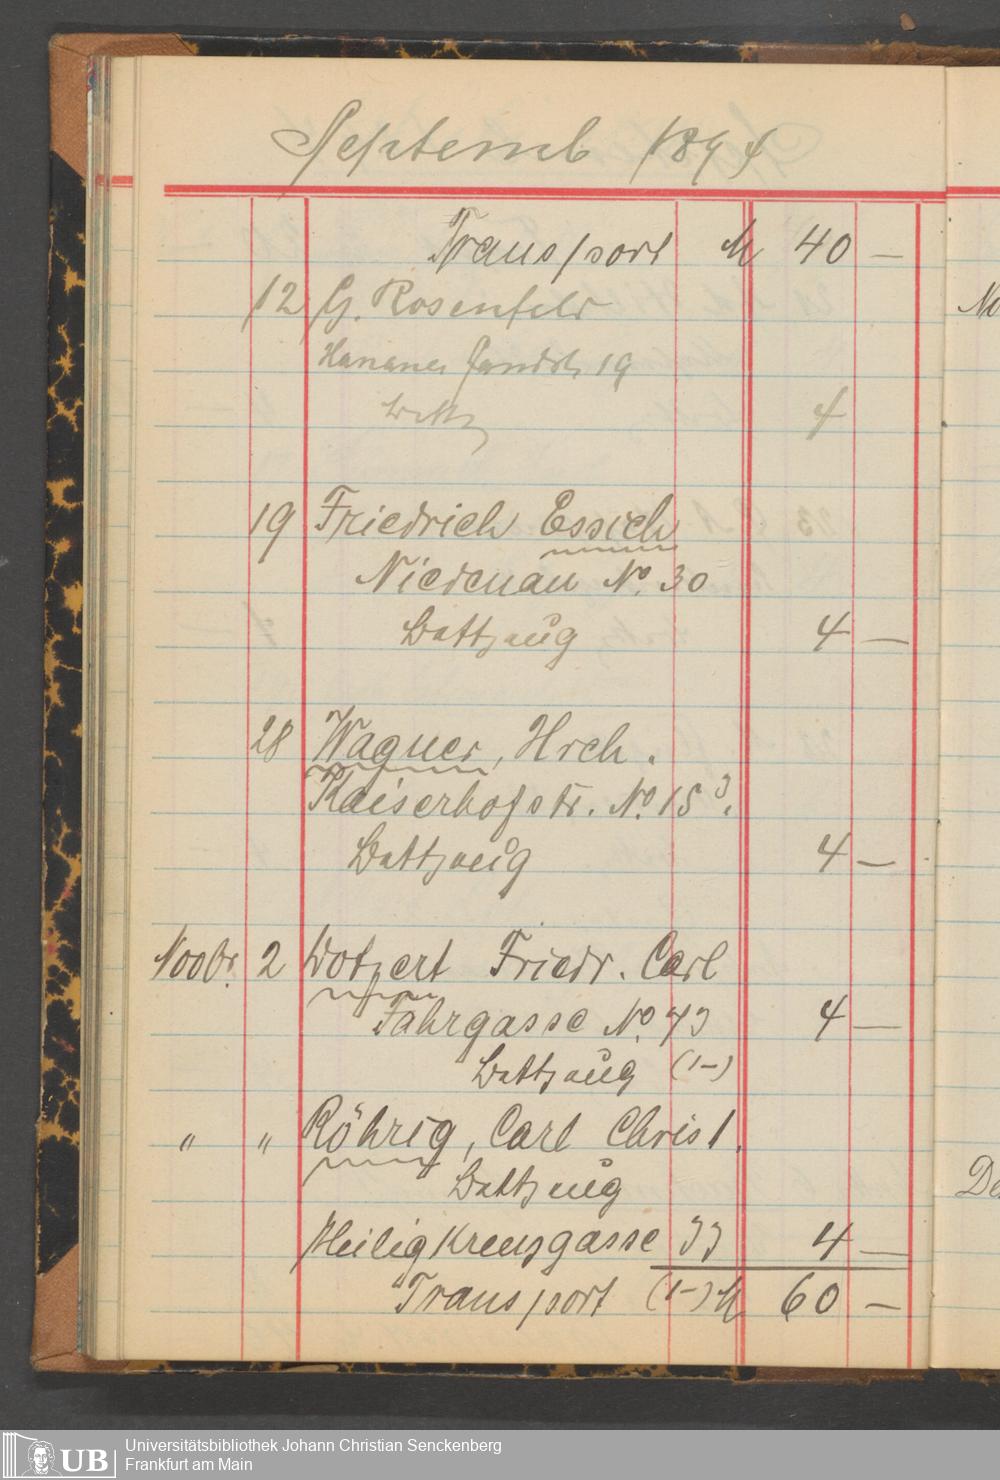 Septemb 1894
Transport M 40 —
12 G. Rosenfeld
Hanauer Landstr 19
4
19 Friedrich Essich
Niedenau No. 30
Bettzeug 4 —
28 Wagner, Hrch.
Kaiserhofstr. No. 15 3.
Bettzeug 4 —
Novbr. 2 Wotzert Friedr. Carl
Fahrgasse No. 73 4 —
Bettzeug (1-)
" " Röhrig, Carl Christ.
Bettzeug
Heiligkreuzgasse 33 4 —
Transport (1-) M 60 —
No
De
UB
Universitätsbibliothek Johann Christian Senckenberg
Frankfurt am Main